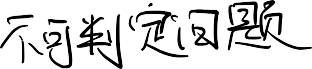 不可判定问题